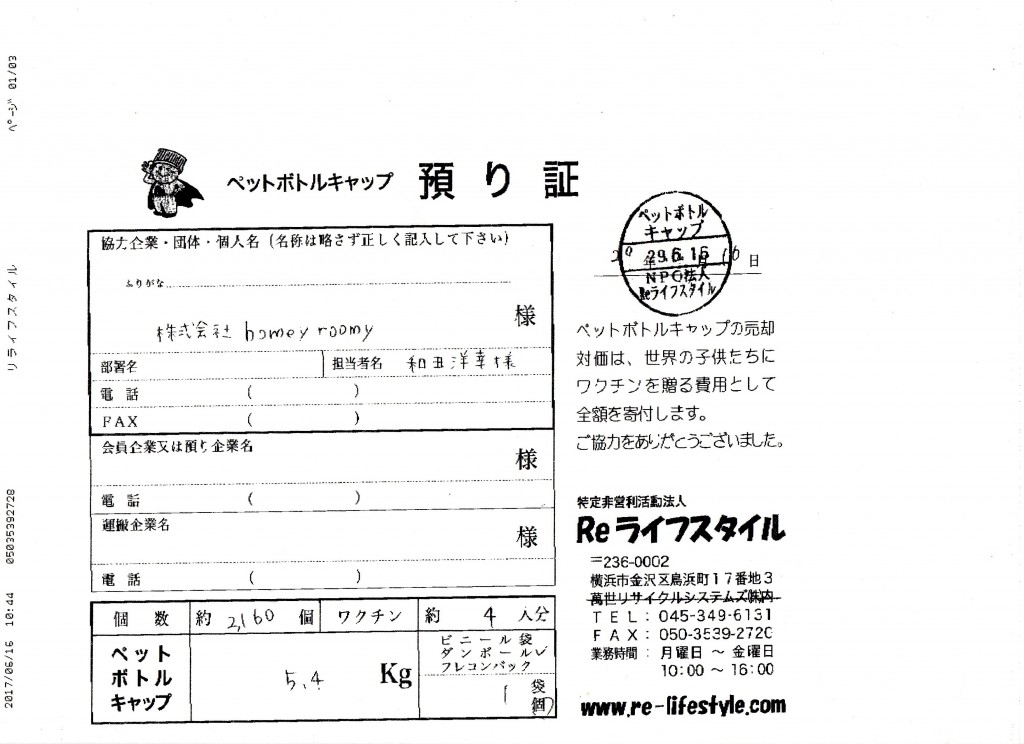 2017/06/16 10:44 05035392728 リライフスタイル ページ 01/03
ペットボトルキャップ 預り証
ペットボトル
キャップ
29.6.16
NPO法人
Reライフスタイル
年 月 16 日
協力企業・団体・個人名(名称は略さず正しく記入して下さい)
ふりがな
株式会社 homey roomy 様
部署名 担当者名 和田洋幸様
電話 ( )
FAX ( )
会員企業又は預り企業名
様
電話 ( )
運搬企業名
様
電話 ( )
個数 約 2,160 個 ワクチン 約 4 人分
ペット
ボトル
キャップ
5.4 Kg
ビニール袋
ダンボール✓
フレコンバック
1 袋
個
ペットボトルキャップの売却
対価は、世界の子供たちに
ワクチンを贈る費用として
全額を寄付します。
ご協力をありがとうございました。
特定非営利活動法人
Reライフスタイル
〒236-0002
横浜市金沢区鳥浜町17番地3
萬世リサイクルシステムズ㈱内
TEL:045-349-6131
FAX:050-3539-2720
業務時間:月曜日 ~ 金曜日
10:00 ~ 16:00
www.re-lifestyle.com